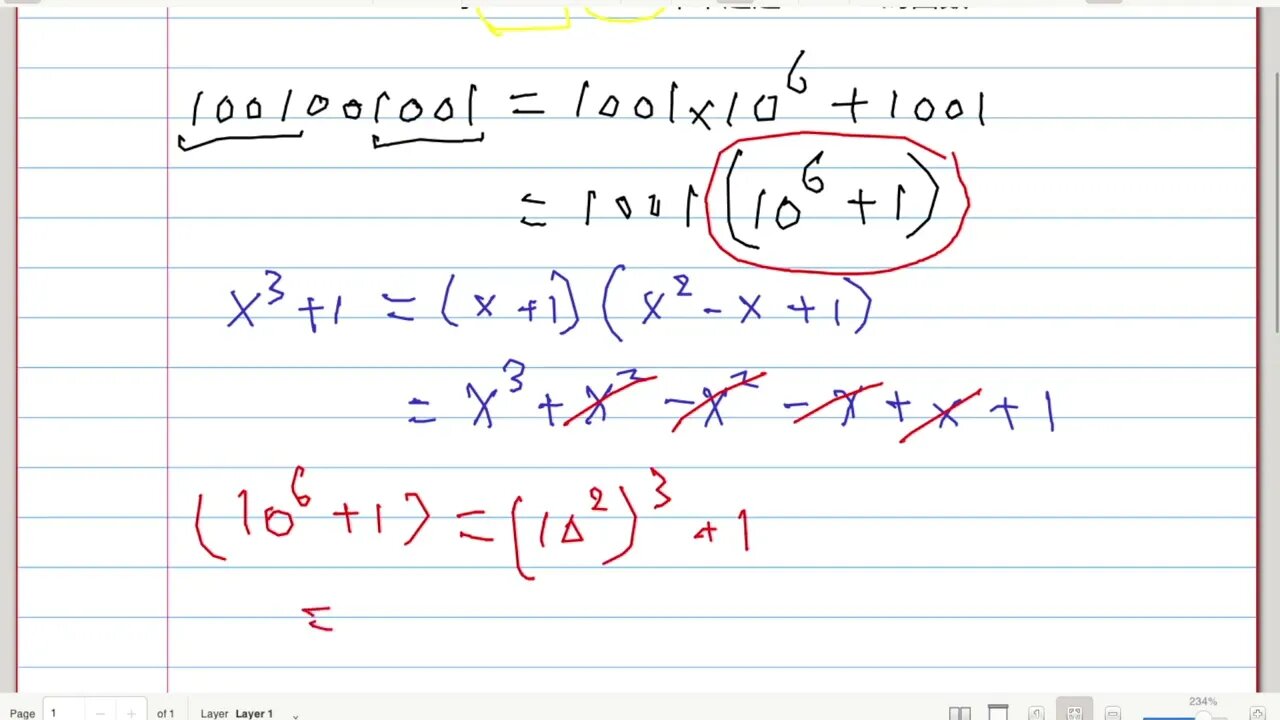 1001001001 = 1001×10⁶ + 1001
= 1001 (10⁶ + 1)
x³ + 1 = (x + 1) (x² - x + 1)
= x³ + x² - x² - x + x + 1
(10⁶ + 1) = (10²)³ + 1
=
234%
Page 1 of 1 Layer Layer 1